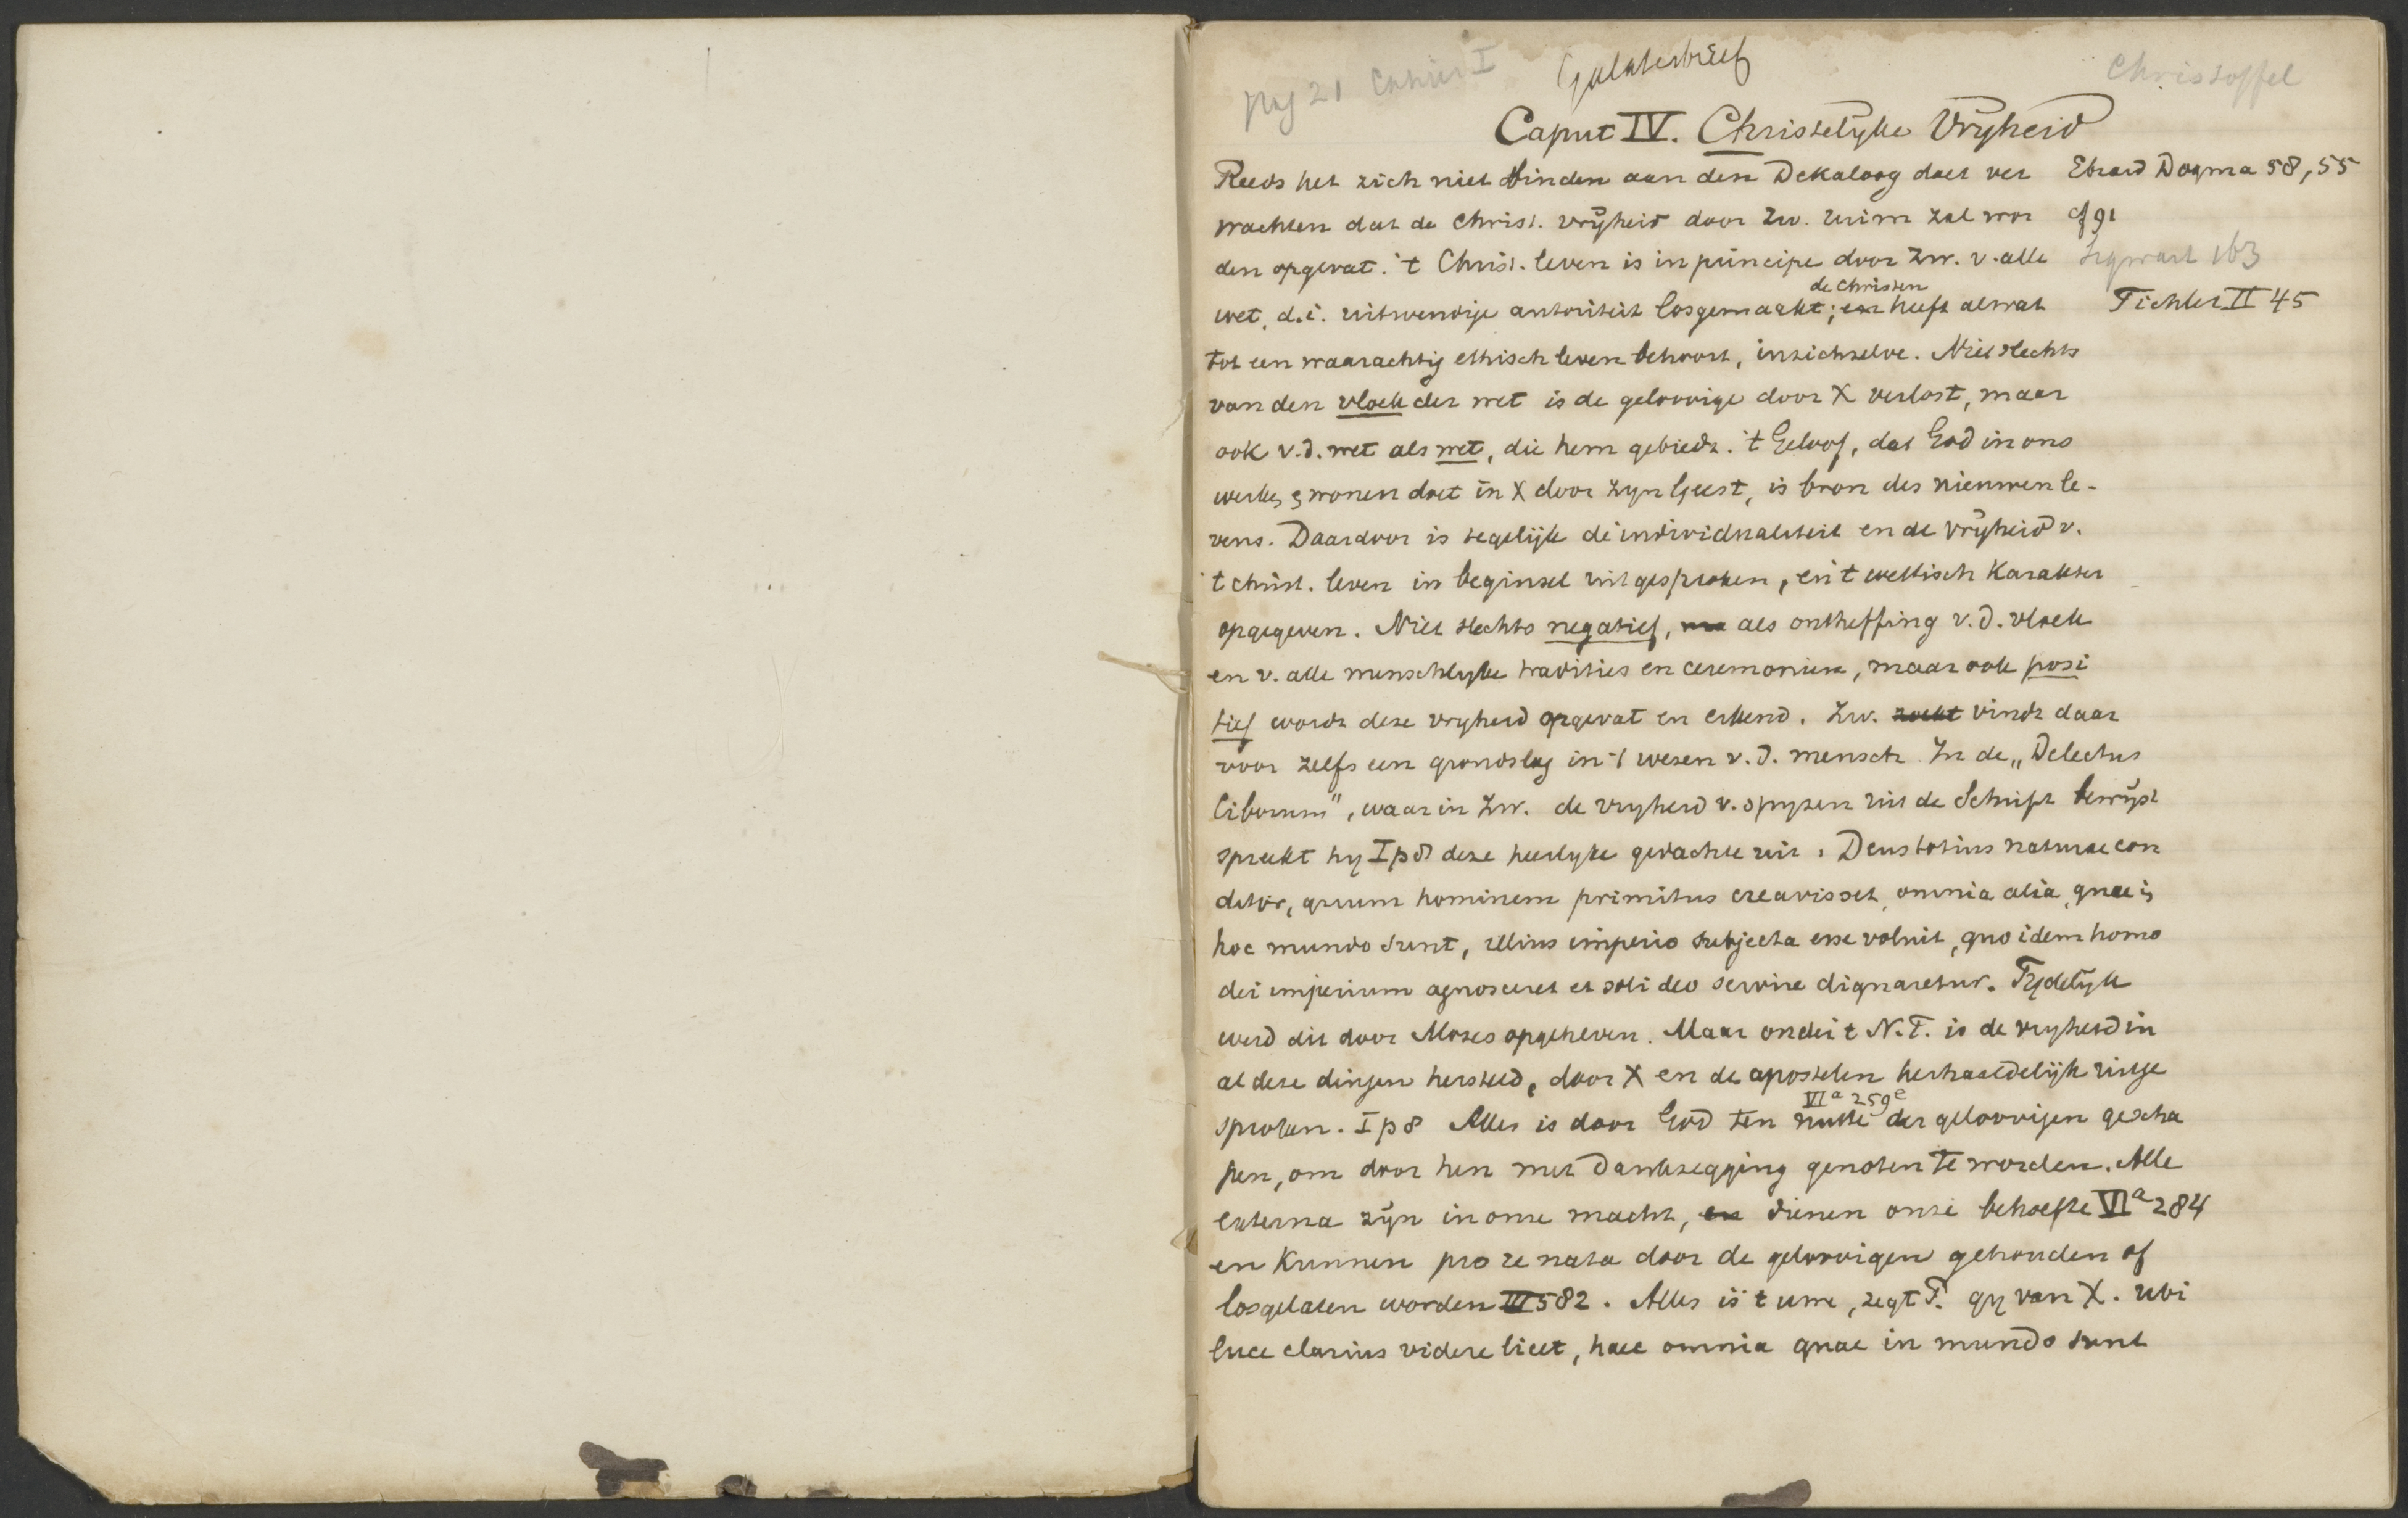 pag 21 Cahier I
Galaterbrief
Christoffel
Caput IV. Christelyke Vryheid
Reeds het zich niet binden aan den Dekaloog doet ver
Ebrard Dogma 58, 55
wachten dat de Christ. vrijheid door Zw. ruim zal wor
cf 91
den opgevat. 't Christ. leven is in principe door Zw. v. alle
Sigwart 163
wet, d.i. uitwendige autoriteit losgemaakt; de Christen heeft alwat
Tichler II 45
tot een waarachtig ethisch leven behoort, in zichzelve. Niet slechts
van den vloek der wet is de geloovige door X verlost, maar
ook v.d. wet als wet, die hem gebiedt. 't Geloof, dat God in ons
werkt, & wonen doet in X door zyn Geest, is bron des nieuwen le-
vens. Daardoor is tegelijk de individualiteit en de vrijheid v.
't christ. leven in beginsel uitgesproken, en 't wettisch Karakter
opgegeven. Niet slechts negatief, als ontheffing v.d. vloek
en v. alle menschlyke tradities en ceremonien, maar ook posi
tief wordt deze vryheid opgevat en erkend. Zw. zoekt vindt daar
voor zelfs een grondslag in 't wezen v.d. mensch. In de „Delectus
Ciborum", waarin Zw. de vryheid v. spyzen uit de Schrift bewijst
spreekt hy I p 8 deze heerlyke gedachte uit: Deus totius naturae con
ditor, quum hominem primitus creavisset, omnia alia, quae in
hoc mundo sunt, illius imperio subjecta esse voluit, quo idem homo
dei imperium agnosceret et soli deo servire dignaretur. Tydelyk
werd dit door Mozes opgeheven. Maar onder 't N.T. is de vryheid in
al deze dingen hersteld, door X en de apostelen herhaaldelijk uitge
sproken. I p 8 Alles is door God ten nutte der geloovigen gescha
VIa 259e
pen, om door hen met dankzegging genoten te worden. Alle
externa zijn in onze macht, en dienen onze behoefte VIa 284
en kunnen pro re nata door de geloovigen gehouden of
losgelaten worden III 582. Alles is 't uwe, zegt P. gy van X. ubi
luce clarius videre licet, haec omnia quae in mundo sunt